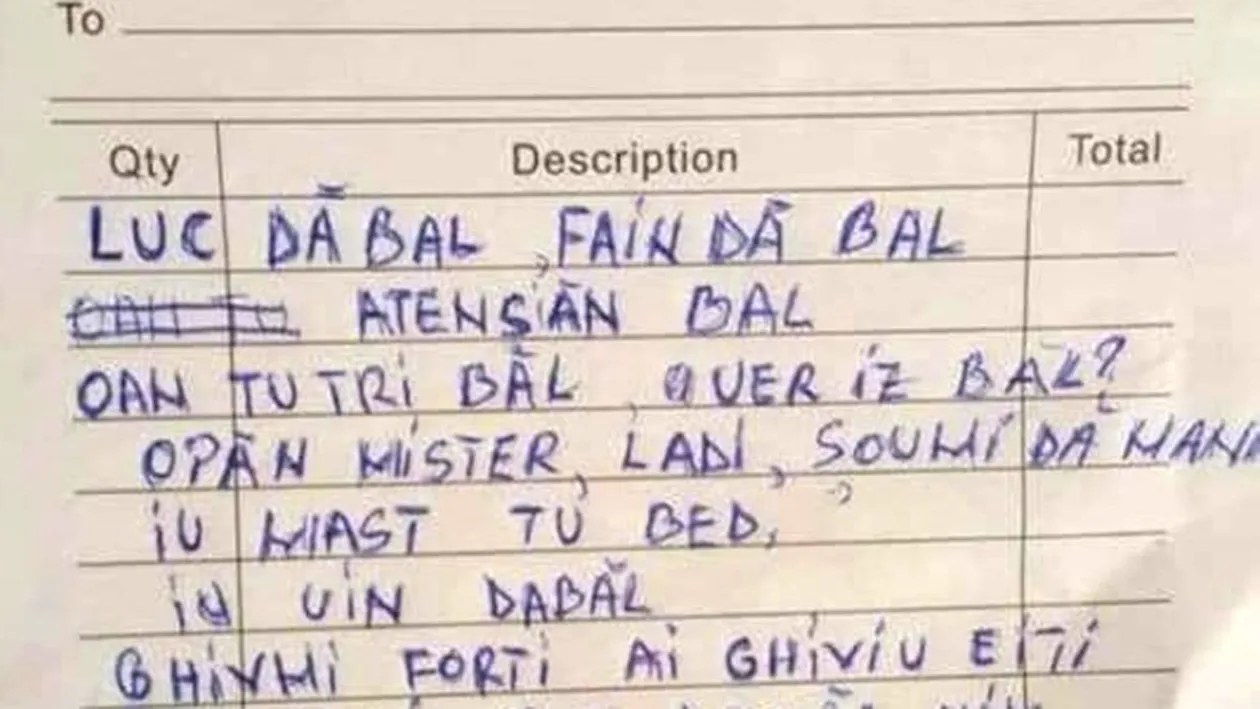 To
Qty Description Total
LUC DĂ BAL, FAIN DĂ BAL
ATENȘĂN BAL
OAN TU TRI BĂL, UER IZ BAL?
OPĂN MISTER, LADI, ȘOUMI DĂ MANI
IU MIAST TU BED,
IU UIN DABĂL
GHIVMI FORTI AI GHIVIU EITI